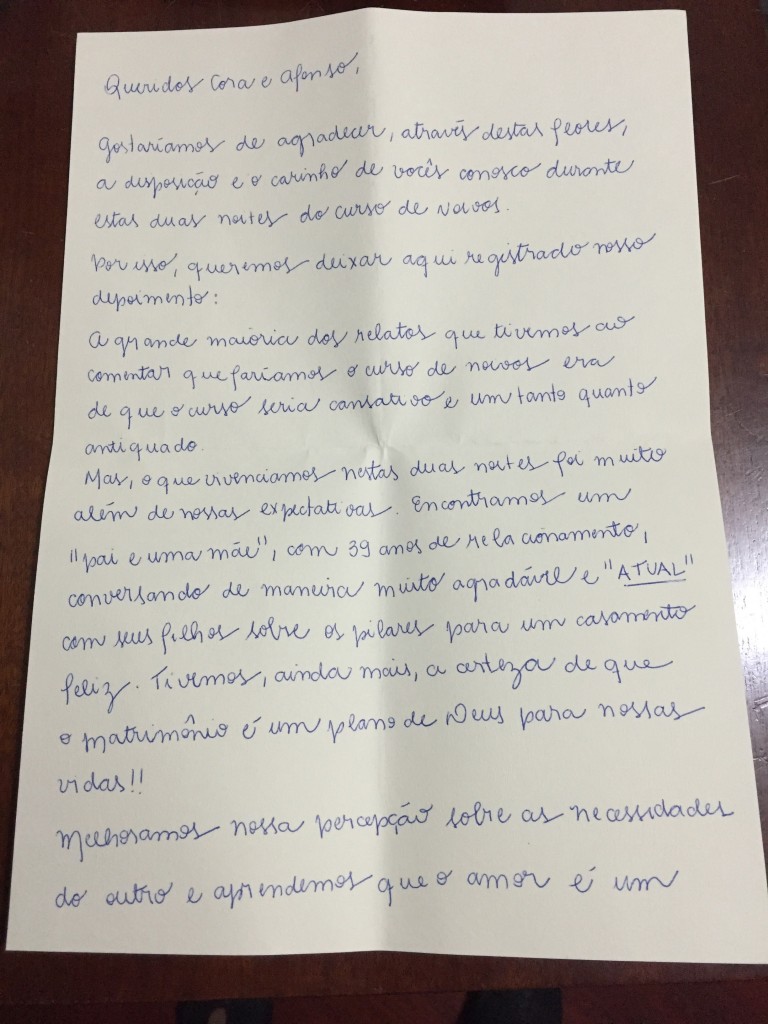 Queridos Cora e Afonso,
Gostaríamos de agradecer, através destas flores,
a disposição e o carinho de vocês conosco durante
estas duas noites do curso de noivos.
Por isso, queremos deixar aqui registrado nosso
depoimento:
A grande maioria dos relatos que tivemos ao
comentar que faríamos o curso de noivos era
de que o curso seria cansativo e um tanto quanto
antiquado.
Mas, o que vivenciamos nestas duas noites foi muito
além de nossas expectativas. Encontramos um
"pai e uma mãe", com 39 anos de relacionamento,
conversando de maneira muito agradável e "ATUAL"
com seus filhos sobre os pilares para um casamento
feliz. Tivemos, ainda mais, a certeza de que
o matrimônio é um plano de Deus para nossas
vidas!!
Melhoramos nossa percepção sobre as necessidades
do outro e aprendemos que o amor é um